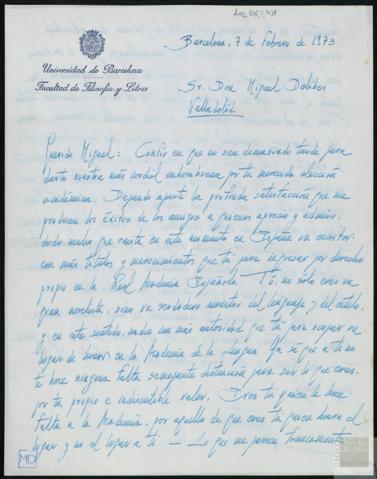 AMD, 108, 1, 438
Barcelona, 7 de febrero de 1973
Universidad de Barcelona
Facultad de Filosofía y Letras
Sr. Don Miguel Delibes
Valladolid
Querido Miguel: Confío en que no sea demasiado tarde para
darte nuestra más cordial enhorabuena por tu merecida elección
académica. Dejando aparte la profunda satisfacción que me
producen los éxitos de los amigos a quienes aprecio y admiro,
dudo mucho que exista en este momento en España un escritor
con más títulos y merecimientos que tú para ingresar por derecho
propio en la Real Academia Española. Tú, no sólo eres un
gran novelista, sino un verdadero maestro del lenguaje y del estilo,
y en este sentido, nadie con más autoridad que tú para ocupar un
lugar de honor en la Academia de la Lengua. Ya sé que a ti no
te hace ninguna falta semejante distinción para ser lo que eres,
por tu propio e indiscutible valor. Eres tú quien le hace
falta a la Academia, por aquello de que eres tú quien honra el
lugar y no el lugar a ti. — Lo que me parece francamente
MD